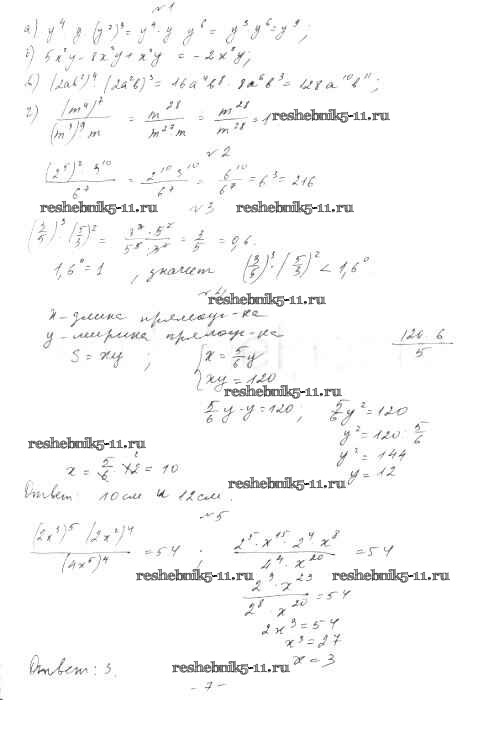 №1
а) y⁴ y (y²)³ = y⁴ · y y⁶ = y³ · y⁶ = y⁹;
б) 5x²y - 8x²y + x²y = -2x²y;
в) (2ab²)⁴ · (2a²b)³ = 16a⁴b⁸ · 8a⁶b³ = 128a¹⁰b¹¹;
г) (m⁴)⁷ / (m³)⁹ m = m²⁸ / m²⁷ m = m²⁸ / m²⁸ = 1 reshebnik5-11.ru
№2
(2⁵)² 3¹⁰ / 6⁷ = 2¹⁰ 3¹⁰ / 6⁷ = 6¹⁰ / 6⁷ = 6³ = 216
reshebnik5-11.ru №3 reshebnik5-11.ru
(3/5)³ · (5/3)² = 3³ · 5² / 5³ · 3² = 3/5 = 0,6.
1,6⁰ = 1 , значит (3/5)³ · (5/3)² < 1,6⁰
№4 reshebnik5-11.ru
x - длина прямоуг-ка
y - ширина прямоуг-ка
S = xy ; { x = 5/6 y 120 6 / 5
xy = 120
reshebnik5-11.ru
5/6 y · y = 120; 5/6 y² = 120
reshebnik5-11.ru y² = 120 · 5/6
y² = 144
x = 5/6 · 12 = 10 reshebnik5-11.ru y = 12
Ответ: 10 см и 12 см.
№5
(2x³)⁵ (2x²)⁴ / (4x⁵)⁴ = 54 ; 2⁵ · x¹⁵ · 2⁴ x⁸ / 4⁴ · x²⁰ = 54
reshebnik5-11.ru reshebnik5-11.ru
2⁹ · x²³ / 2⁸ · x²⁰ = 54
2x³ = 54
x³ = 27
Ответ: 3. reshebnik5-11.ru x = 3
- 7 -